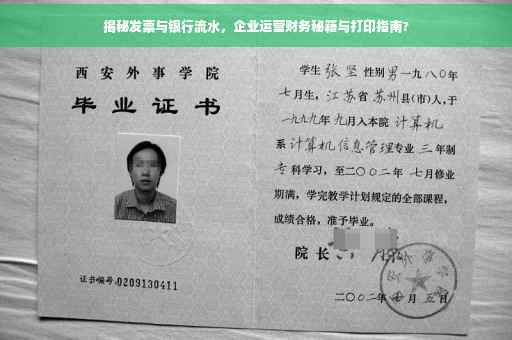 揭秘发票与银行流水，企业运营财务秘籍与打印指南?
西安外事学院
毕业证书
证书编号:0209130411
学生张坚性别男一九八〇年
七月生，江苏省苏州县(市)人，于
一九九九年九月入本院计算机
系计算机信息管理专业三年制
专科学习，至二〇〇二年七月修业
期满，学完教学计划规定的全部课程，
成绩合格，准予毕业。
院长
二〇〇二年 月五日